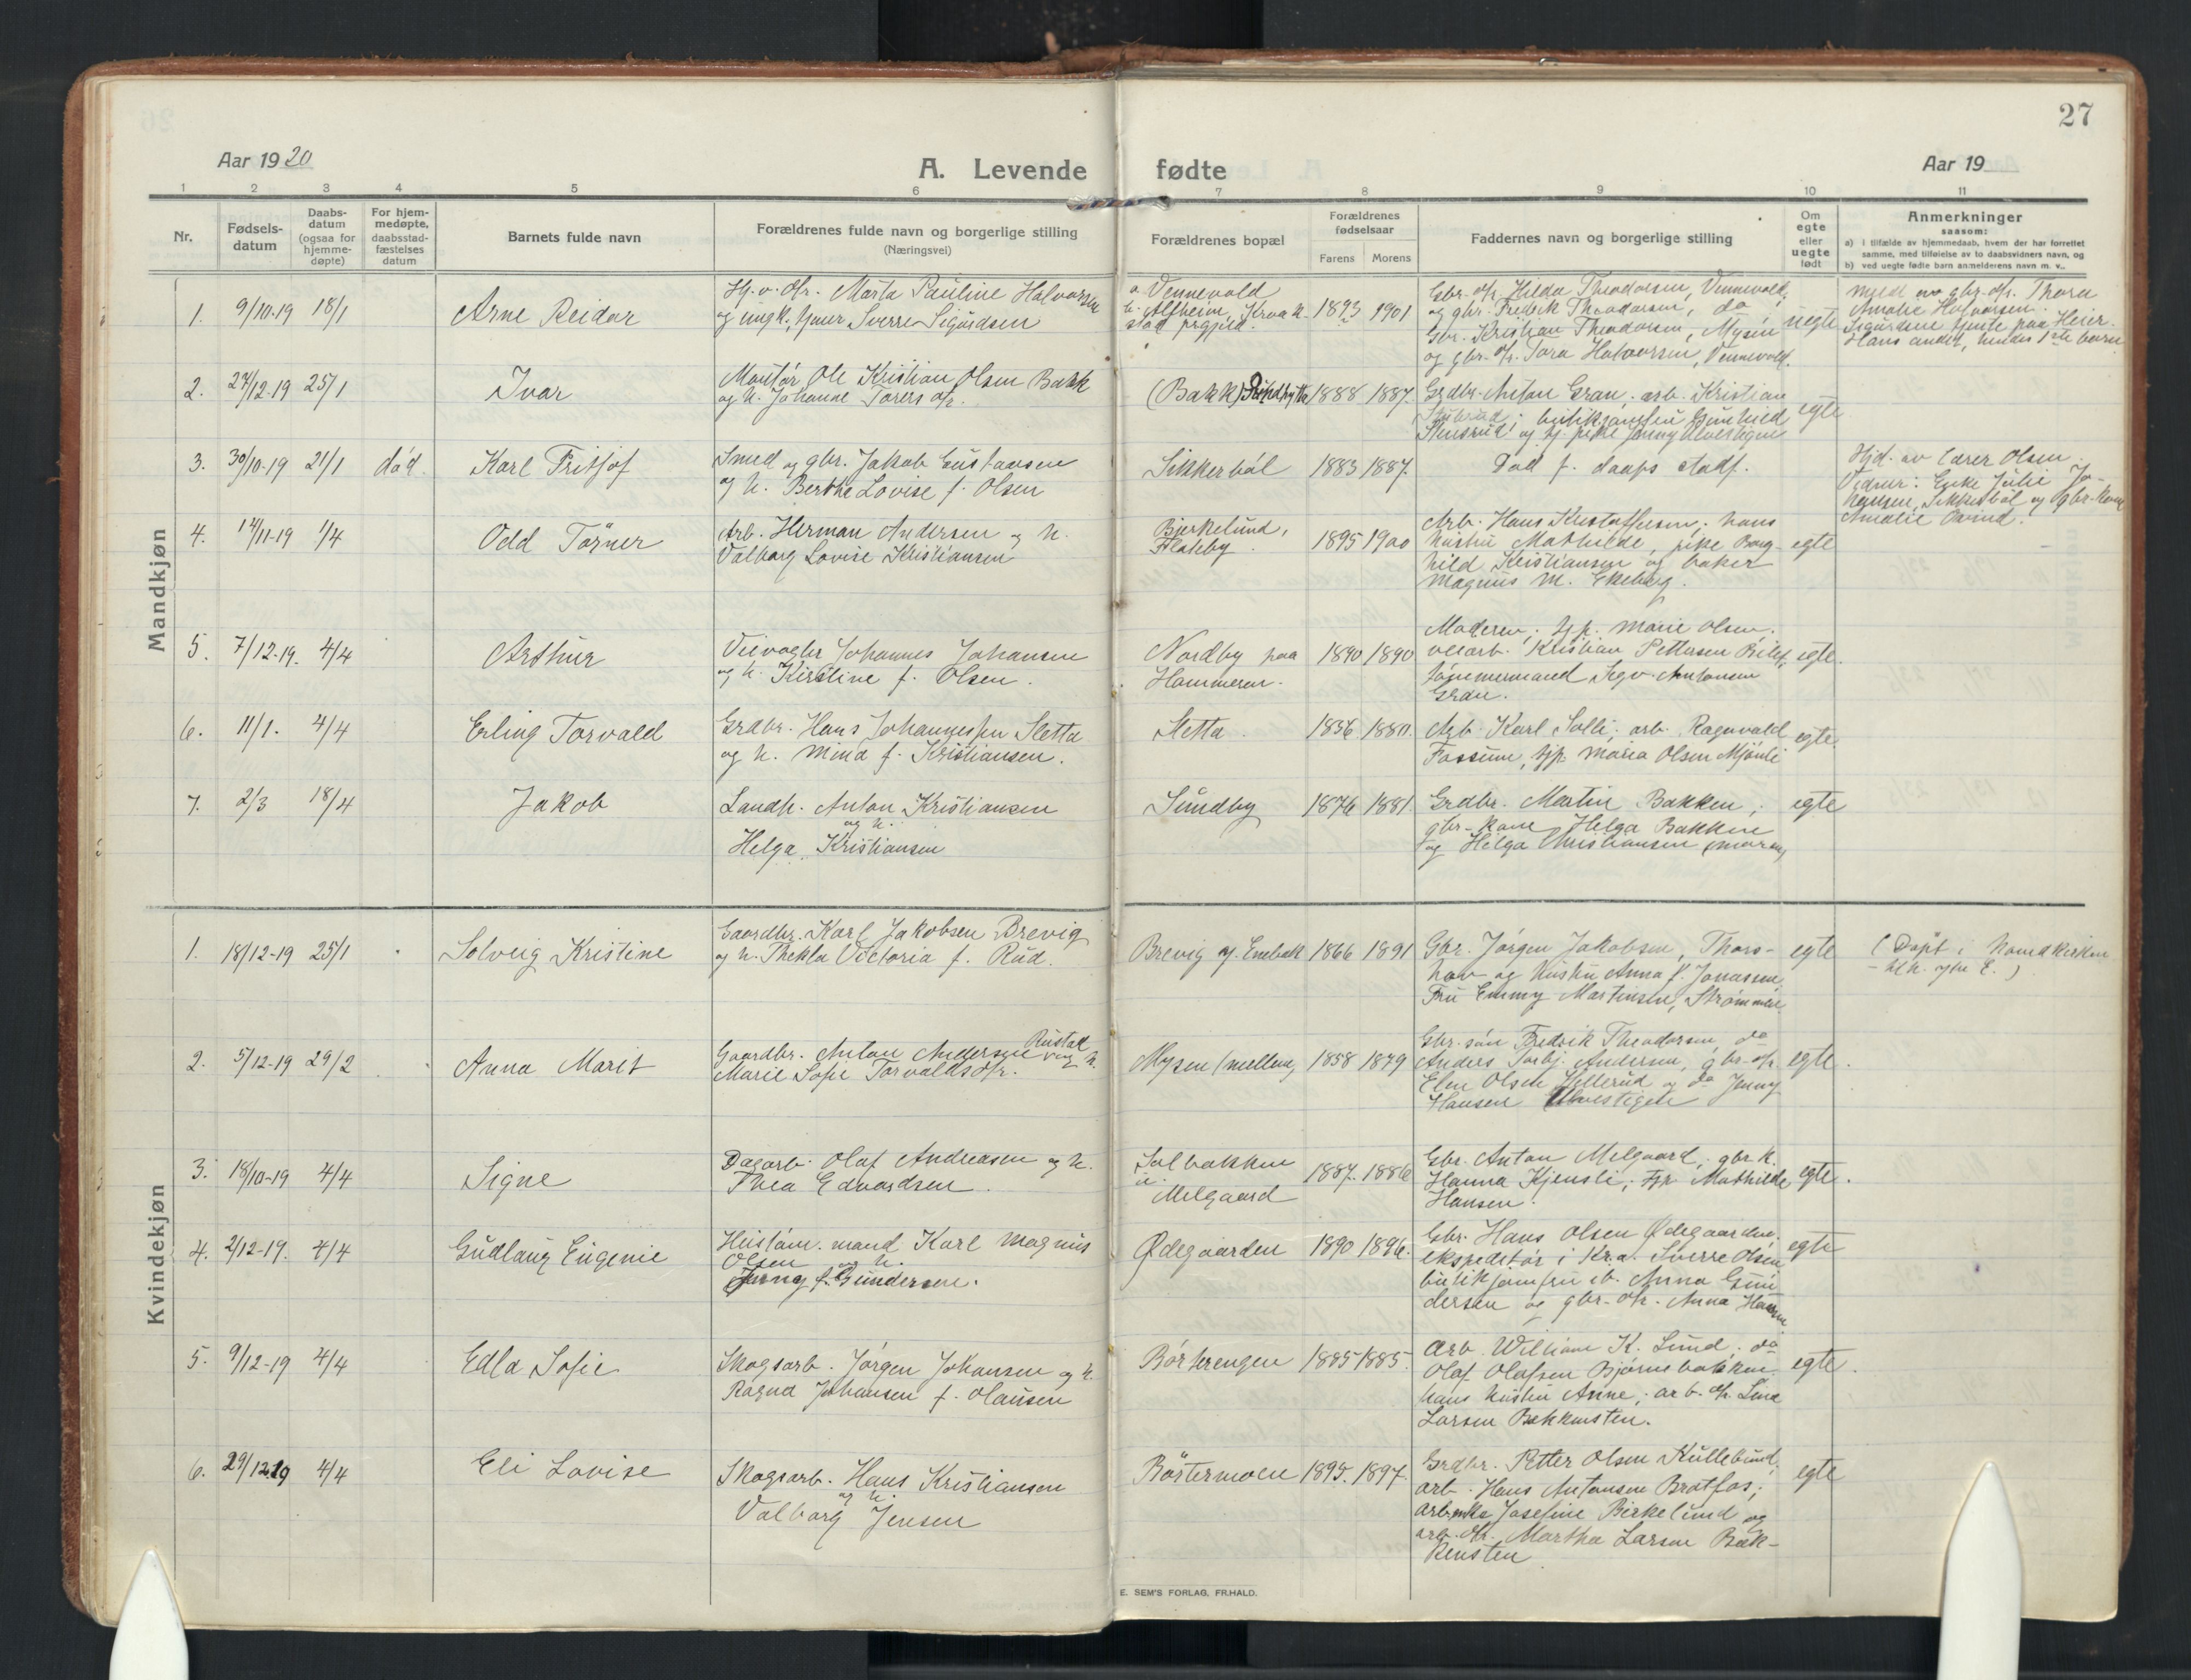 27
Aar 1920
A. Levende fødte
Aar 19
1 2 3 4 5 6 7 8 9 10 11
Nr.
Fødsels-
datum
Daabs-
datum
(ogsaa for
hjemme-
døpte)
For hjem-
medøpte,
daabsstad-
fæstelses
datum
Barnets fulde navn
Forældrenes fulde navn og borgerlige stilling
(Næringsvei)
Forældrenes bopæl
Forældrenes
fødselsaar
Farens Morens
Faddernes navn og borgerlige stilling
Om
egte
eller
uegte
født
Anmerkninger
saasom:
a) i tilfælde av hjemmedaab, hvem der har forrettet
samme, med tilføielse av to daabsvidners navn, og
b) ved uegte fødte barn anmelderens navn m. v..
Mandkjøn
1. 9/10-19 18/1
Arne Reidar
Hj. v. d/r. Marta Pauline Halvorsen
og ungk. Sverre Sigurdsen
a. Vennevold
b. Alfheim, Kraak-
stad prgjeld.
1893 1901
Gbr. d/r Hilda Theodorsen, Vennevold,
og gbr. Fredrik Theodorsen, do,
Gbr. Kristian Theodorsen, Mysen
og gbr. d/r. Tora Halvorsen, Vennevold.
uegte
Meldt av gbr. d/r. Thora
Amalie Halvorsen.
Sigurdsen tjente paa Heier.
Hans andet, hendes 1ste barn
2. 27/12-19 25/1
Ivar
Montør Ole Kristian Olsen Bakk
og h. Johanne Torers d/r.
(Bakk) Sundbytte
1888 1887.
Grdbr. Anton Gran, arb. Kristian
Stubsrud; butikjomfru Gunhild
Stubsrud; og tj. pike Jenny Ulvestigen
egte
3. 30/10-19 21/1 død
Karl Fritjof
Smed og gbr. Jakob Gustavsen
og h. Berthe Lovise f. Olsen
Sikkerbøl
1883 1887.
Død f. daaps stadf.
Hjd. av lærer Olsen.
Vidner: Enke Julie Jo-
hansen, Sikkerbøl og gbr-kone
Amalie Østvind.
4. 14/11-19 1/4
Odd Tørner
Arb. Herman Andersen og h.
Valborg Lovise Kristiansen
Bjerkelund,
Flateby.
1895 1900
Arb. Hans Kristoffersen; hans
hustru Mathilde, pike Borg-
hild Kristiansen og baker
Magnus M. Ekeberg.
egte
5. 7/12-19. 4/4
Arthur
Veivogter Johannes Johansen
og h. Kirstine f. Olsen.
Nordby paa
Hammeren.
1890 1890
Moderen; tjp. Marie Olsen,
veiarb. Kristian Pettersen
tømmermand Sigv. Antonsen
Gran.
egte.
6. 11/1. 4/4
Erling Torvald
Grdbr. Hans Johannessen Sletta
og h. Mina f. Kristiansen.
Sletta.
1886 1880.
Arb. Karl Solli; arb. Ragnvald
Fossum, tjp. Maria Olsen Mjønli
egte.
7. 2/3 18/4
Jakob
Landh. Anton Kristiansen
og h.
Helga Kristiansen
Sundby
1876 1881.
Grdbr. Martin Bakken;
gbr-kone Helga Bakken
og Helga Christiansen (moren)
egte
Kvindekjøn
1. 18/12-19 25/1
Solveig Kristine
Gaardbr. Karl Jakobsen Brevig
og h. Thekla Victoria f. Rud.
Brevig y. Enebak
1866 1891
Gbr. Jørgen Jakobsen, Thors-
hov og hustru Anna f. Jonassen,
Fru Emmy Martinsen, Strømmen
egte
(Døpt i hovedkirken
- tlh. ytre E.)
2. 5/12-19 29/2
Anna Marit
Gaardbr. Anton Andersen Rustad
og h.
Marie Sofie Torvaldsd/r.
Mysen (mellem)
1858 1879
Gbr. søn Fredrik Theodorsen, do
Anders Torbj. Andersen, gbr-d/r.
Elen Olsen Hellerud og do Jenny
Hansen Ulvestigen
egte.
3. 18/10-19 4/4
Signe
Dagarb. Olaf Andreasen og h.
Thea Edvardsen.
Solbakken
u.
Melgaard
1887. 1886
Gbr. Anton Melgaard, gbr. k.
Hanna Kjensli; tjp. Mathilde
Hansen.
egte.
4. 2/12-19. 4/4
Gudlaug Eugenie
Hustøm. mand Karl Magnus
Olsen og h.
Jenny f. Gundersen.
Ødegaarden
1890 1896.
Gbr. Hans Olsen Ødegaarden;
ekspeditør i Kr.a. Sverre Olsen
butikjomfru ib. Anna Gun-
dersen og gbr-d/r. Anna Hansen.
egte
5. 9/12-19 4/4
Edla Sofie
Skogsarb. Jørgen Johansen og h.
Ragna Johansen f. Olausen
Børterengen
1885 1885.
Arb. William K. Lund; do
Olaf Olafsen Bjørnebakken
hans hustru Anne; arb. d/r. Lina
Larsen Bekkensten.
egte.
6. 29/12.19 4/4
Eli Lovise
Skogsarb. Hans Kristiansen
og h.
Valborg Jensen
Børtermoen
1895. 1897.
Grdbr. Petter Olsen Kullebund,
arb. Hans Antonsen Bratfos;
arb.enke Josefine Birkelund og
arb. d/r. Martha Larsen Bek-
kensten.
egte
E. SEM'S FORLAG, FR.HALD.